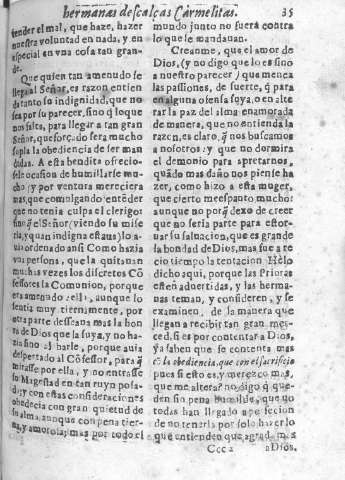 hermanas descalças Carmelitas. 35
tender el mal, que haze, hazer
nuestra voluntad en nada, y en
especial en vna cosa tan gran-
de.
Que quien tan amenudo se
llega al Señor, es razon entien
da tanto su indignidad, que no
sea por su parecer, sino q̃ lo que
nos falta, para llegar a tan gran
Señor, que forçado sera mucho
supla la obediencia de ser man
dadas. A esta bendita ofrecio-
sele ocasion de humillarse mu-
cho: y por ventura mereciera
mas, que comulgando entẽder
que no tenia culpa el clerigo
sino q̃ el Señor, viendo su mise
ria, y quan indigna estaua, lo a-
uia ordenado ansi Como hazia
vna persona, que la quitauan
muchas vezes los discretos Cõ
fessores la Comunion, porque
era amenudo: ella, aunque lo
sentia muy tiernamente, por
otra parte desseaua mas la hon
ra de Dios que la suya, y no ha-
zia sino alabarle, porque auia
despertado al Cõfessor, para q̃
mirasse por ella, y no entrasse
su Magestad en tan ruyn posa-
da: y con estas consideraciones
obedecia con gran quietud de
su alma, aunque con pena tier-
na, y amorosa; mas por todo el
mundo junto no fuera contra
lo que le mandauan.
Creanme, que el amor de
Dios, (y no digo que lo es sino
a nuestro parecer) que menea
las passiones, de suerte, q̃ para
en alguna ofensa suya, o en alte
rar la paz del alma enamorada
de manera, que no entienda la
razon, es claro, q̃ nos buscamos
a nosotros: y que no dormira
el demonio para apretarnos,
quãdo mas daño nos piense ha
zer, como hizo a esta muger,
que cierto me espanto mucho:
aunque no por q̃ dexo de creer
que no seria parte para estor-
uar su saluacion, que es grande
la bondad de Dios, mas fue a re
cio tiempo la tentacion Helo
dicho aqui, porque las Prioras
esten aduertidas, y las herma-
nas teman, y consideren, y se
examinen, de la manera que
llegan a recibir tan gran mer-
ced, si es por contentar a Dios,
ya saben que se contenta mas
cõ la obediencia, que con el sacrificio
pues si esto es, y merezco mas,
que me altera? no digo q̃ que-
den sin pena humilde, que no
todas han llegado a perfecion
de no tenerla por solo hazer lo
que entienden que agrada mas
Ccc 2 a Dios.